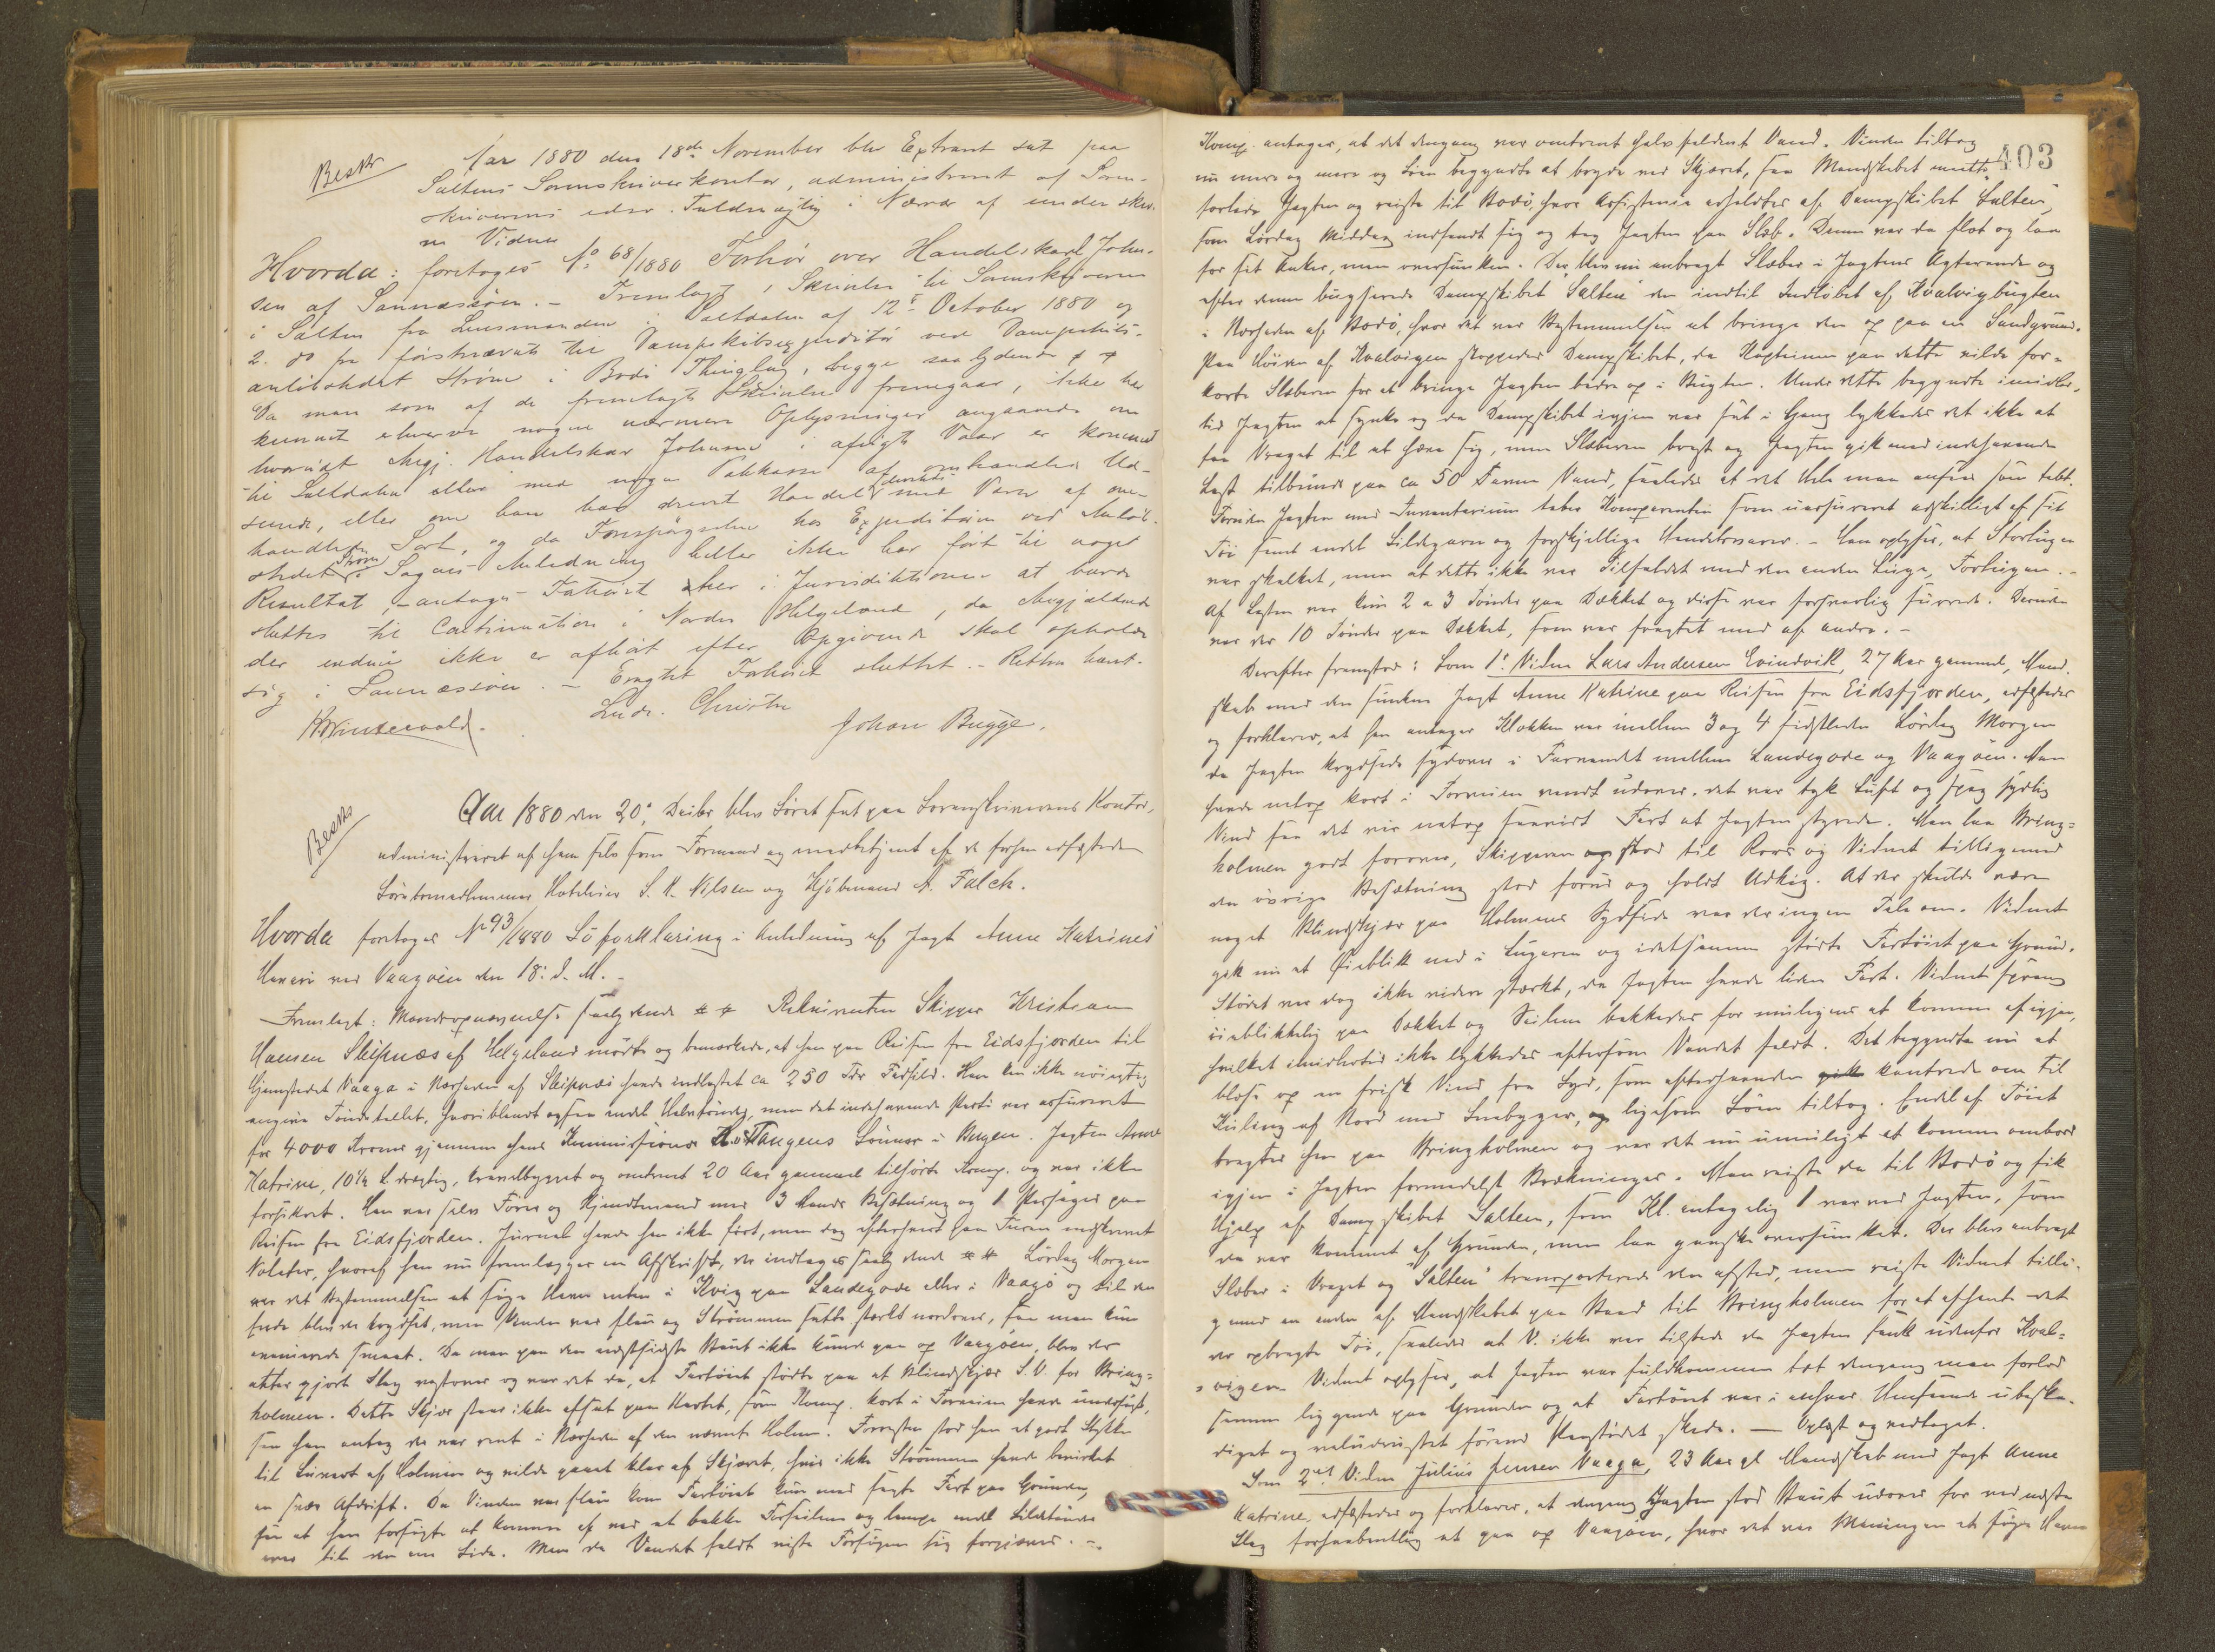 Beskr
Aar 1880 den 18de November blev Extraret sat paa
Saltens Sorenskriverkontor, administreret af Soren-
skriverens edsv. Fuldmægtig i Nærvær af underskrev-
ne Vidner
Hvorda: foretoges No 68/1880 Forhør over Handelskarl Johan-
sen af Sannæssøen. – Fremlagt 1 Skrivelse til Sorenskriveren
i Salten fra Lensmanden i Saltdalen af 12te October 1880 og
2. do fra førstnævnte til Dampskibsexpeditør ved Dampskibs-
anløbsstedet Strøm i Bodø Thinglag, begge saalydende # #
Da man som af de fremlagte Skrivelser fremgaar, ikke har
kunnet erhverve nogen nærmere Oplysninger angaaende om
hvorvidt Angj. Handelskar Johansen i afvigte Vaar er kommet
til Saltdalen eller med nogen Pakkasse af omhandlede Ud-
seende, eller om han har drevet Handel dersteds med Varer af om-
handlede Sort, og da Forespørgselen hos Expeditøren ved Anløb-
stedet Strøm i Sagens Anledning heller ikke har ført til noget
Resultat, – antages Forhøret her i Jurisdiktionen at burde
sluttes til Continuation i Nordre Helgeland, da Angjældende
der endnu ikke er afhørt efter Opgivende skal opholde
sig i Sannæssøen. – Eragtet Forhøret sluttet. – Retten hævet.
K. Wintervold. Ludv. Christen Johan Bugge.
Beskr
Aar 1880 den 20de Decbr blev Søret sat paa Sorenskriverens Kontor,
administreret af ham selv som Formand og medbetjent af de forhen edfæstede
Søretsmedlemmer, Hoteleier S. N. Nilsen og Kjøbmand A. Falch.
Hvorda foretoges No 93/1880 Søforklaring i Anledning af Jagt Anne Katrines
Havari ved Vaagøen den 18de d. M. –
Fremlagt: Mandsopnævnelse saalydende # # Rekvirenten Skipper Kristian
Hansen Skipnæs af Helgeland mødte og bemærkede, at han paa Reisen fra Eidsfjorden til
Hjemstedet Vaaga i Nærheden af Skipnæs havde indlastet ca 250 Tdr Fedsild. Han kan ikke nøiagtig
angive Tøndetallet, hvoriblandt ogsaa endel Halvtønder, men det indehavende Parti var assureret
for 4000 Kroner gjennem hans Kommissionær Tangens Sønner i Bergen. Jagten Anne
Katrine, 10½ L. drægtig, kravelbygget og omtrent 20 Aar gammel tilhørte Komp. og var ikke
forsikret. Han var selv Fører og Kjendtmand med 3 Mands Besætning og 1 Passager paa
Reisen fra Eidsfjorden. Journal havde han ikke ført, men dog efterhvert paa Turen nedskrevet
Notater, hvoraf han nu fremlægger en Afskrift, der indtages saalydende # # Lørdag Morgen
var det Bestemmelsen at søge Havn enten i Kvig paa Landegode eller i Vaagø og til den
Ende blev der krydset, men Vinden var flau og Strømmen satte stærkt nordover, saa man kun
avancerede smaat. Da man paa den næstsidste Baut ikke kunde gaa op Vaagøen, blev der
atter gjort Slag vestover og var det da, at Fartøiet stødte paa et Blindskjær S.V. for Bring-
holmen. Dette Skjær staar ikke afsat paa Kartet, som Komp. kort i Forveien havde undersøgt,
saa han antog der var rent i Nærheden af den nævnte Holme. Forresten stod han et godt Stykke
til Luvart af Holmen og vilde gaaet klar af Skjæret, hvis ikke Strømmen havde bevirket
en svær Afdrift. Da Vinden var flau kom Fartøiet kun med sagte Fart paa Grunden,
saa at han forsøgte at komme af ved at bakke Forseilene og lempe endel Sildetønder
over til den ene Side. Men da Vandet faldt viste Forsøgene sig forgjæves. –
403
Komp. antager, at det dengang var omtrent halv faldent Vand. Vinden tiltog
nu mere og mere og Søen begyndte at bryde ved Skjæret, saa Mandskabet maatte
forlade Jagten og reiste til Bodø, hvor Assistence erholdtes af Dampskibet Salten,
som Lørdag Middag indfandt sig og tog Jagten paa Slæb. Denne var da flot og laa
for sit Anker, men oversunken. Der blev nu anbragt Slæber i Jagtens Agterende og
efter denne bugserede Dampskibet "Salten" den indtil Indløbet af Hvalvigbugten
i Nærheden af Bodø, hvor det var Bestemmelsen at bringe den op paa en Sandgrund.
Paa Høiden af Hvalvigen stoppedes Dampskibet, da Kapteinen paa dette vilde for-
korte Slæberen for at bringe Jagten bedre op i Bugten. Under dette begyndte imidler-
tid Jagten at synke og da Dampskibet igjen var sat i Gang lykkedes det ikke at
faa Vraget til at hæve sig, men Slæberen brast og Jagten gik med indehavende
Last tilbunds paa ca 50 Favne Vand, saaledes at det Hele maa ansees som tabt.
Foruden Jagten med Inventarium tabte Komparenten som uassureret adskilligt af sit
Tøi samt endel Sildegarn og forskjellige Handelsvarer. – Han oplyser, at Storlugen
var skalket, men at dette ikke var Tilfældet med den anden Luge, Forlugen. –
Af Lasten var kun 2 a 3 Tønder paa Dækket og disse var forsvarlig surrede. Desuden
var der 10 Tønder paa Dækket, som var fragtet med af andre. –
Derefter fremstod: Som 1ste Vidne Lars Andersen Evindvik, 27 Aar gammel, Mand-
skab med den sunkne Jagt Anne Katrine paa Reisen fra Eidsfjorden, edfæstedes
og forklarer, at han antager Klokken var mellem 3 og 4 sidstleden Lørdag Morgen
da Jagten krydsede sydover i Farvandet mellem Landegode og Vaagøen. Man
havde netop kort i Forveien vendt udover. det var tyk Luft og svag sydlig
Vind saa det var netop saavidt Fart at Jagten styrede. Man saa Bring-
holmen godt forover, Skipperen stod til Rors og Vidnet tilligemed
den øvrige Besætning stod forud og holdt Udkig. At der skulde være
noget Blindskjær paa Holmens Sydside var der ingen Tale om. Vidnet
gik nu et Øieblik ned i Lugaren og idetsamme stødte Fartøiet paa Grund.
Stødet var dog ikke videre stærkt, da Jagten havde liden Fart. Vidnet sprang
øieblikkelig paa Dækket og Seilene bakkedes for muligens at komme af igjen,
hvilket imidlertid ikke lykkedes eftersom Vandet faldt. Det begyndte nu at
blæse op en frisk Vind fra Syd, som efterhaanden gik kantrede om til
Kuling af Nord med Snebyger, og ligesom Søen tiltog. Endel af Tøiet
bragtes han paa Bringholmen og var det nu umuligt at komme ombord
igjen i Jagten formedelst Brækninger. Man reiste da til Bodø og fik
Hjælp af Dampskibet Salten, som Kl. antagelig 1 var ved Jagten, som
da var kommet af Grunden, men laa ganske oversunket. Der blev anbragt
Slæber i Vraget og "Salten" transporterede den afsted, men reiste Vidnet tilli-
gemed en anden af Mandskabet paa Baad til Bringholmen for at afhente det
der opbragte Tøi, saaledes at V. ikke var tilstede da Jagten sank udenfor Hval-
vigen. Vidnet oplyser, at Jagten var fuldkommen tæt dengang man forlod
samme liggende paa Grunden og at Fartøiet var i enhver Henseende ubeska-
diget og veludrustet førend Paastødet skede. — Oplæst og vedtaget.
Som 2det Vidne Julius Jensen Vaaga, 23 Aar gl Mandskab med Jagt Anne
Katrine, edfæstedes og forklarer, at dengang Jagten stod Baut udover for ved næste
Slag forhaabentlig at gaa op Vaagøen, hvor det var Meningen at søge Havn